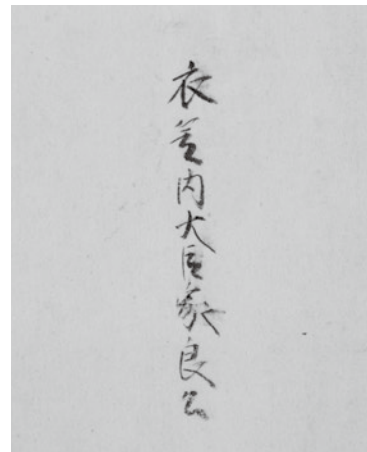 衣笠内大臣家良公